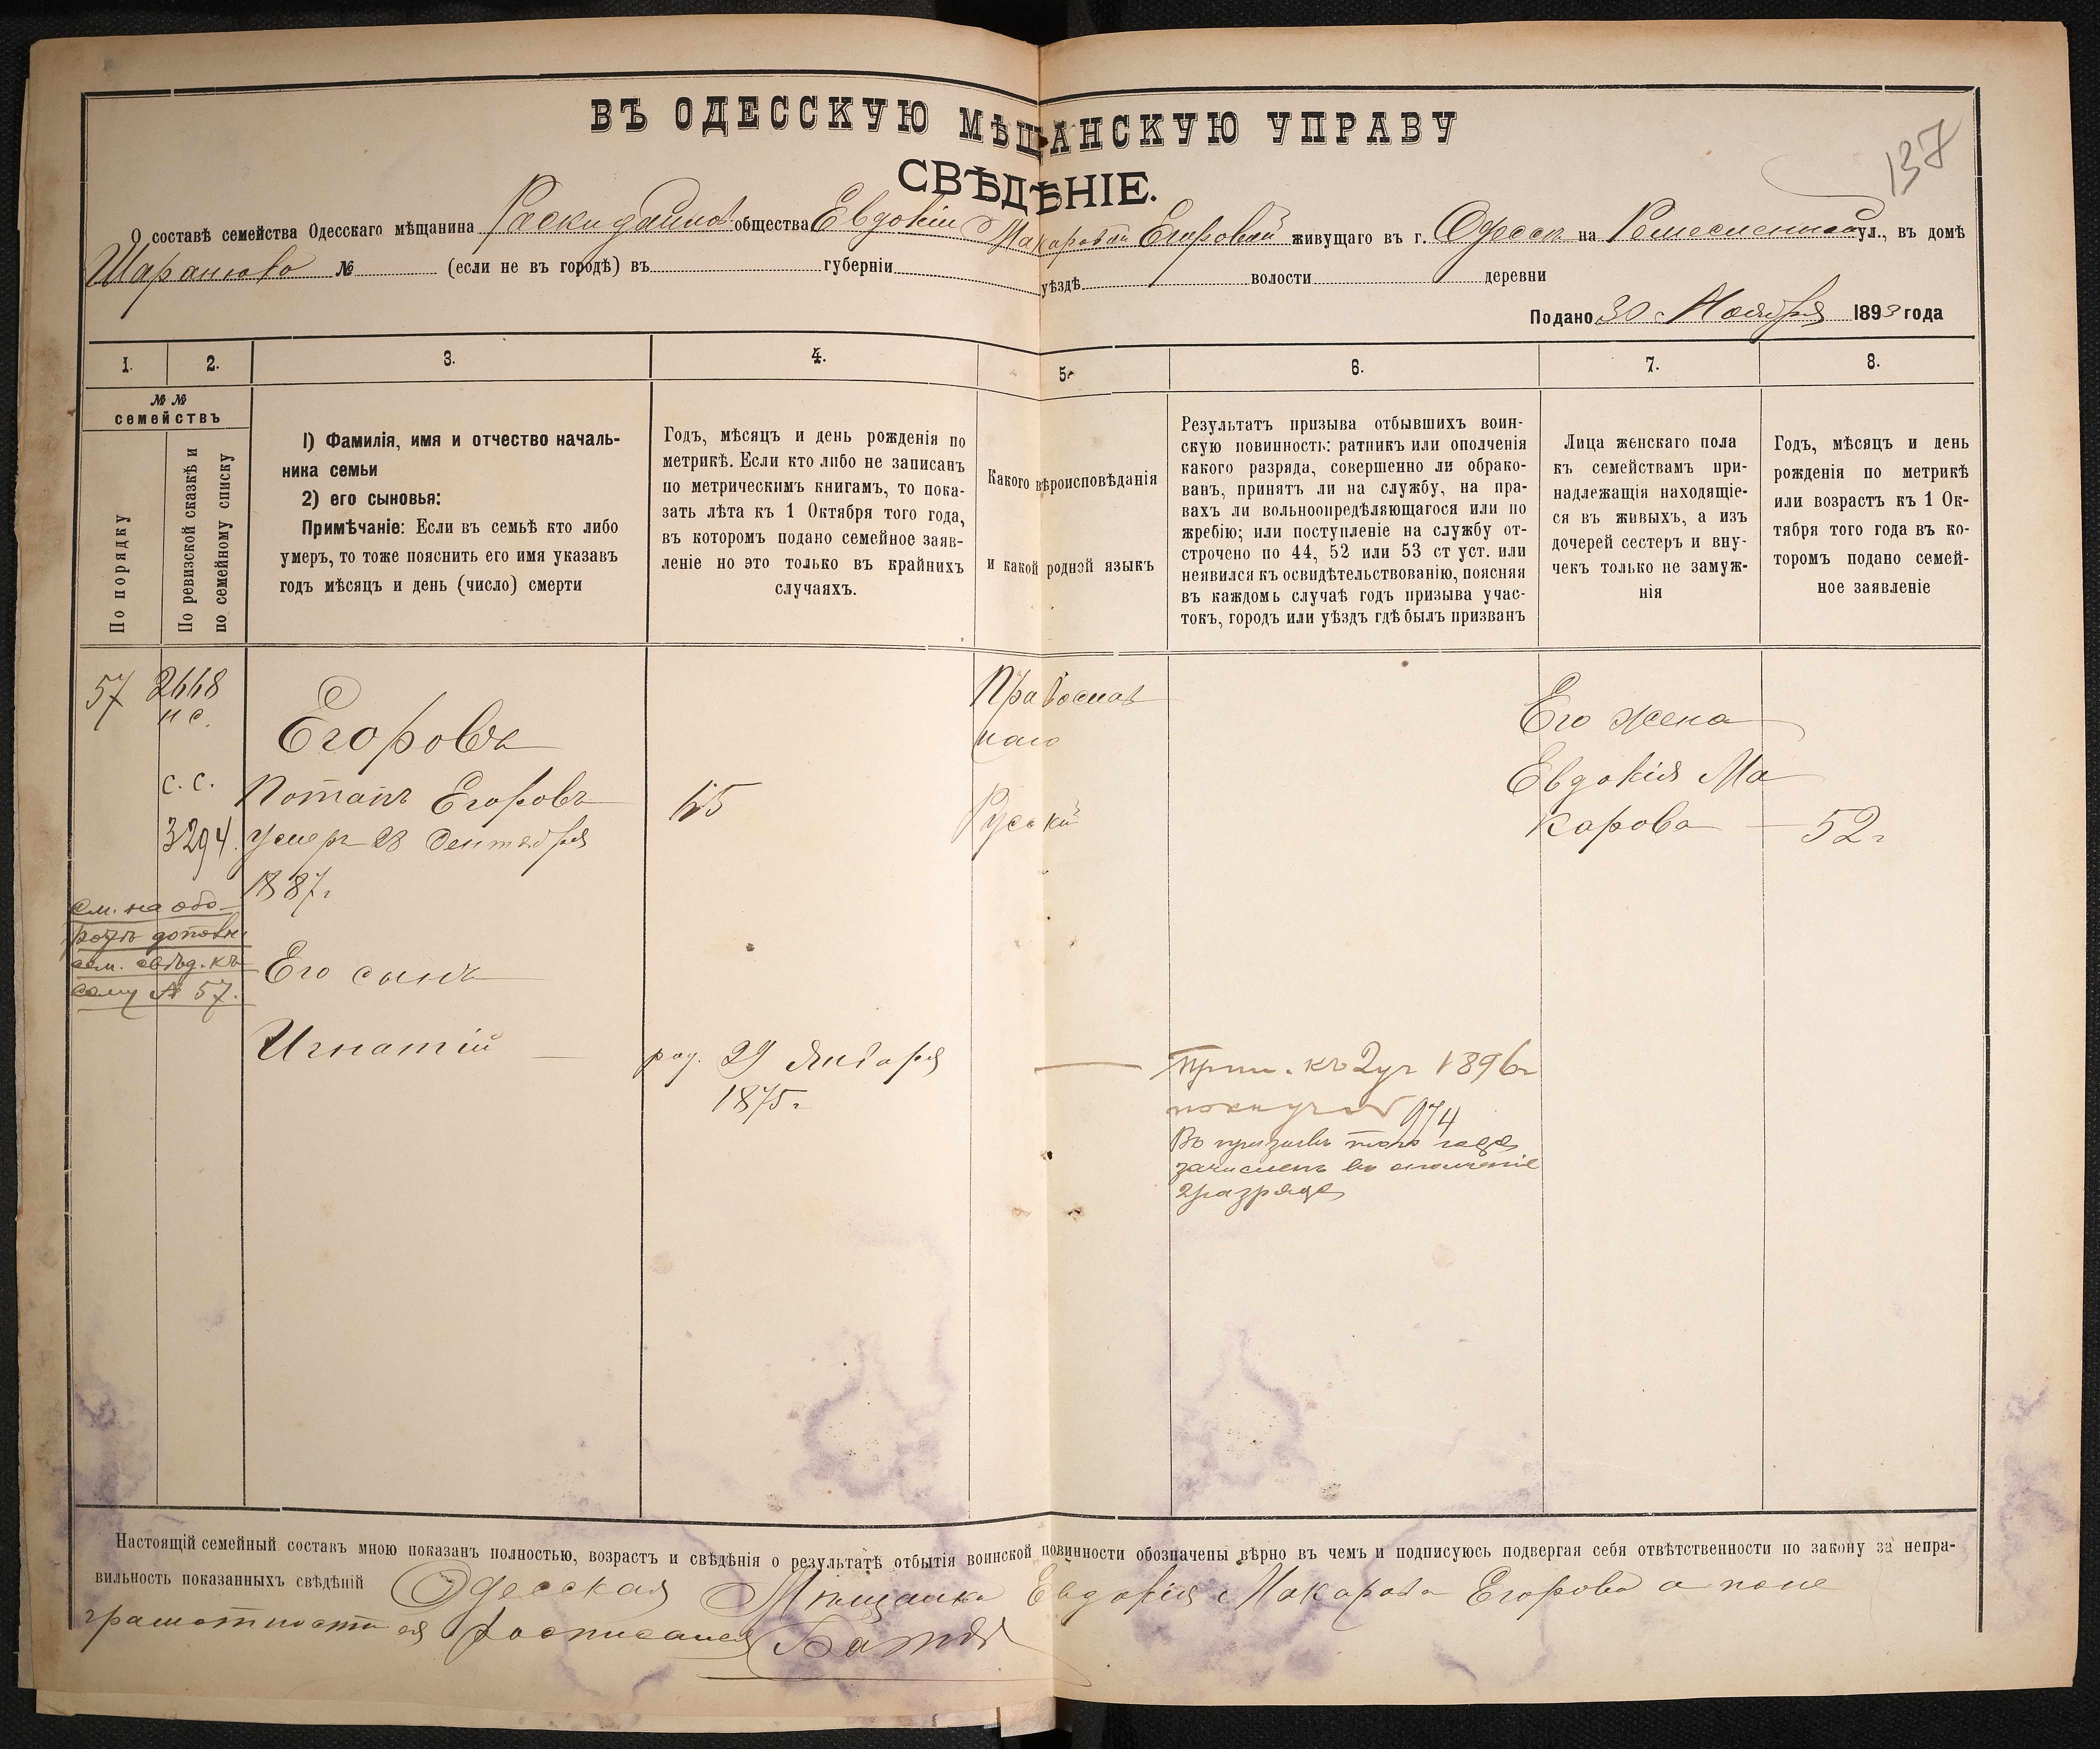 ВЪ ОДЕССКУЮ МѢЩАНСКУЮ УПРАВУ
137
СВѢДѢНІЕ.
О составѣ семейства Одесскаго мѣщанина Раскидайлов общества Евдокіи Макаровой Егоровой живущаго въ г. Одессѣ на Ремесленной ул., въ домѣ
№ (если не въ городѣ) въ губерніи уѣздѣ волости деревни
Подано 30 Ноября 1893 года
1. 2. 3. 4. 5. 6. 7. 8.
№ №
семействъ
По порядку
По ревизской сказкѣ и
по семейному списку
1) Фамилія, имя и отчество началь-
ника семьи
2) его сыновья:
Примѣчаніе: Если въ семьѣ кто либо
умеръ, то тоже пояснить его имя указавъ
годъ мѣсяцъ и день (число) смерти
Годъ, мѣсяцъ и день рожденія по
метрикѣ. Если кто либо не записанъ
по метрическимъ книгамъ, то пока-
зать лѣта къ 1 Октября того года,
въ которомъ подано семейное заяв-
леніе но это только въ крайнихъ
случаяхъ.
Какого вѣроисповѣданія
и какой родной языкъ
Результатъ призыва отбывшихъ воин-
скую повинность: ратникъ или ополченія
какого разряда, совершенно ли обрако-
ванъ, принятъ ли на службу, на пра-
вахъ ли вольноопредѣляющагося или по
жребію; или поступленіе на службу от-
строчено по 44, 52 или 53 ст уст. или
неявился къ освидѣтельствованію, поясняя
въ каждомъ случаѣ годъ призыва учас-
токъ, городъ или уѣздъ гдѣ былъ призванъ
Лица женскаго пола
къ семействамъ при-
надлежащія находящіе-
ся въ живыхъ, а изъ
дочерей сестеръ и вну-
чекъ только не замуж-
нія
Годъ, мѣсяцъ и день
рожденія по метрикѣ
или возрастъ къ 1 Ок-
тября того года въ ко-
торомъ подано семей-
ное заявленіе
57 2668
н с.
с. с.
3294.
см. на обо-
ротѣ дополн.
сем. свѣд. къ
сему № 57.
Егоровъ
Потапъ Егоровъ
умеръ 28 Сентября
1887г.
Его сынъ
Игнатій —
65
род. 29 Января
1875г.
Православ
наго
Руській
—
Прип. къ 2 уч 1896г
974
Въ призывъ того года
зачисленъ въ ополченіе
2 разряда
Его жена
Евдокія Ма
карова — 52г
Настоящій семейный составъ мною показанъ полностью, возрастъ и свѣдѣнія о результатѣ отбытія воинской повинности обозначены вѣрно въ чемъ и подписуюсь подвергая себя отвѣтственности по закону за непра-
вильность показанныхъ свѣдѣній Одесская Мѣщанка Евдокія Макарова Егорова а по не
грамотности ея росписался